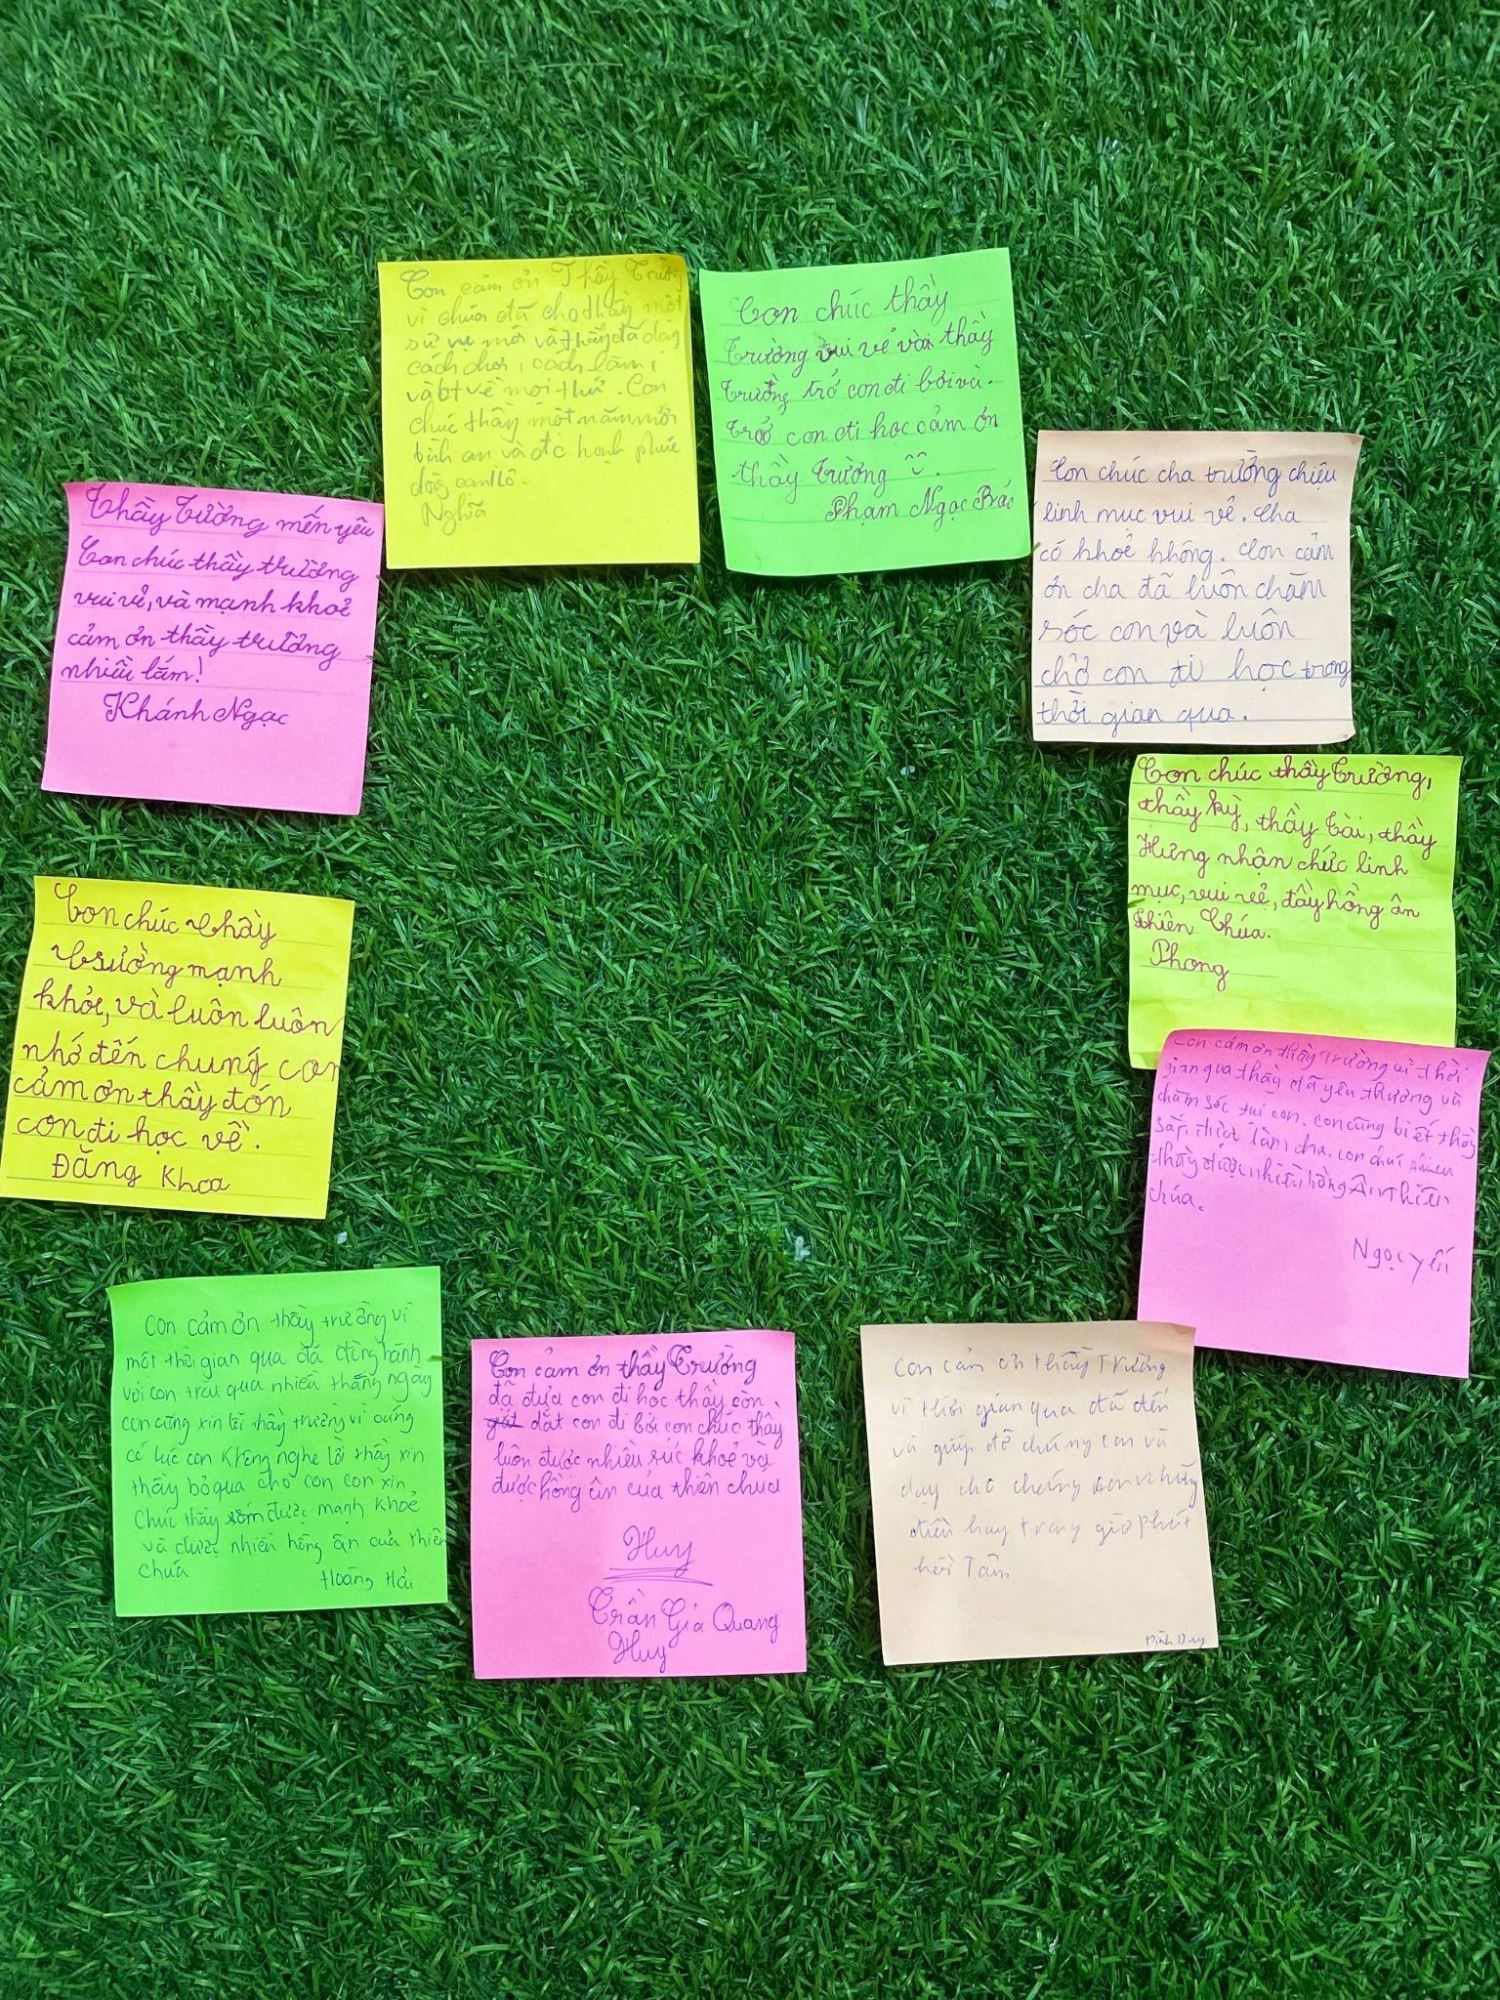 Con cảm ơn Thầy Trường
vì chúa đã cho thầy một
sứ vụ mới và thầy đã dạy
cách chơi, cách làm,
và bt về mọi thứ. Con
chúc thầy một năm mới
bình an và đc hạnh phúc
Nghĩa
Con chúc thầy
Trường vui vẻ vài thầy
Trường trở con đi bơi và
trở con đi học cảm ơn
thầy Trường
Phạm Ngọc Bảo
Con chúc cha trưởng chiệu
linh mục vui vẻ. Cha
có khoẻ không. Con cảm
ơn cha đã luôn chăm
sóc con và luôn
chở con đi học trong
thời gian qua.
Thầy Trường mến yêu
Con chúc thầy trường
vui vẻ, và mạnh khoẻ
cảm ơn thầy trường
nhiều lắm!
Khánh Ngọc
Con chúc thầy Trường,
thầy kỳ, thầy Tài, thầy
Hưng nhận chức linh
mục, vui vẻ, đầy hồng ân
thiên Chúa.
Phong
Con chúc thầy
trường mạnh
khỏe, và luôn luôn
nhớ đến chúng con
cảm ơn thầy đón
con đi học về.
Đăng Khoa
con cám ơn thầy Trường vì thời
gian qua thầy đã yêu thương và
chăm sóc tụi con. con cũng biết thầy
sắp được làm cha. con chúc
thầy được nhiều hồng Ân thiên
chúa.
Ngọc Yến
con cảm ơn thầy trường vì
một thời gian qua đã đồng hành
với con trải qua nhiều tháng ngày
con cũng xin lỗi thầy trường vì cũng
có lúc con không nghe lời thầy xin
thầy bỏ qua cho con con xin
chúc thầy sớm được mạnh khoẻ
và được nhiều hồng ân của thiên
chúa
Hoàng Hải
Con cảm ơn thầy Trường
đã đưa con đi học thầy còn
dắt con đi bơi con chúc thầy
luôn được nhiều sức khoẻ và
được hồng ân của thiên chúa
Huy
Trần Gia Quang
Huy
con cảm ơn thầy Trường
vì thời gian qua đã đến
và giúp đỡ chúng con và
dạy cho chúng con những
điều hay trong giờ phút
hồi Tâm
Đình Duy